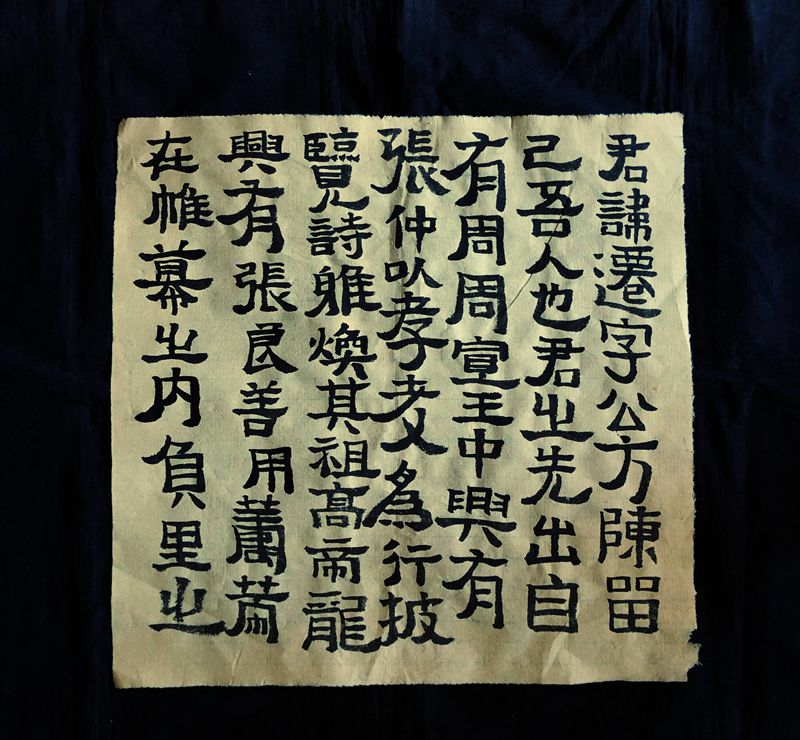 君諱遷字公方陳留
己吾人也君之先出自
有周周宣王中興有
張仲以孝友為行披
覽詩雅煥其祖高帝龍
興有張良善用籌策
在帷幕之內負里之